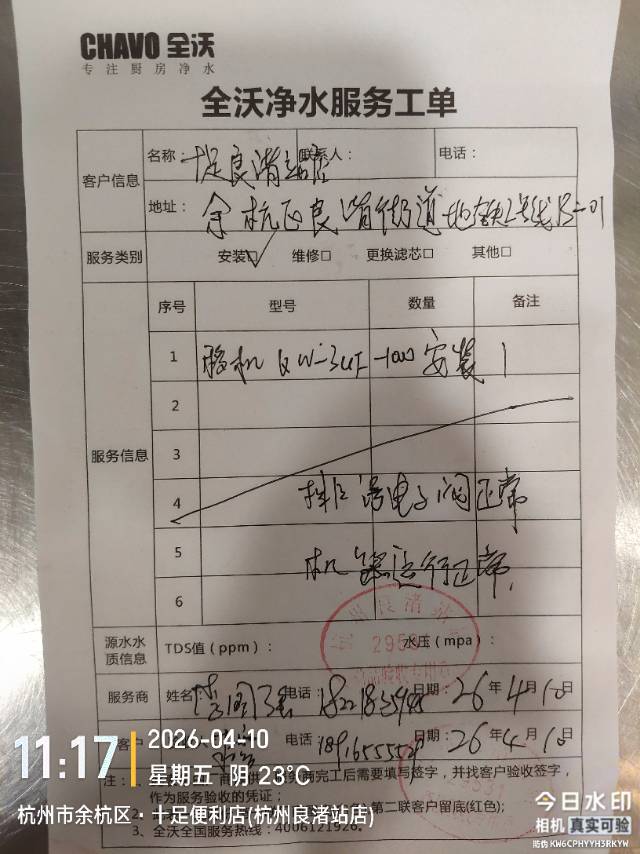 CHAVO 全沃
专注厨房净水
全沃净水服务工单
客户信息
名称：十足良渚站店 联系人： 电话：
地址：余杭区良渚街道地铁2号线B-01
服务类别 安装☑ 维修□ 更换滤芯□ 其他□
服务信息
序号 型号 数量 备注
1 移机 QW-3UF-1000 安装 1
2
3
4 电子阀正常
5 机器运行正常
6
源水水质信息 TDS值（ppm）： 水压（mpa）：
良渚站
服务商 姓名 电话： 日期：26年4月10日
客户 电话 日期：26年4月10日
商完工后需要填写签字，并找客户验收签字，
作为服务验收的凭证；
第二联客户留底(红色);
3、全沃全国服务热线：4006121926.
11:17
2026-04-10
星期五 阴 23℃
杭州市余杭区·十足便利店(杭州良渚站店)
今日水印
相机 真实可验
防伪 KW6CPHYYH3RKYW